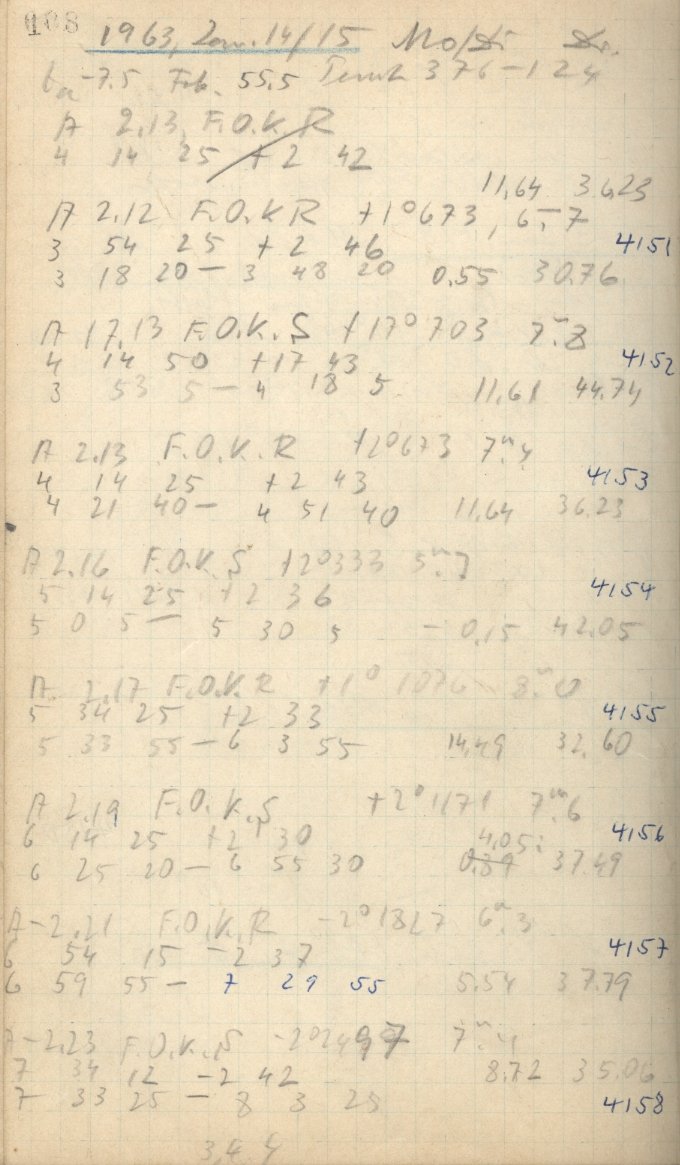 108
1963, Jan. 14/15 Mo/Di
-7.5 Feb. 55.5 Temp 376-124
A 2.13 F.O.K R
4 14 25 +2 42
11,64 36,23
A 2.12 F.O.K R +1°673, 6.7
3 54 25 +2 46 4151
3 18 20 - 3 48 20 0.55 30.76
A 17.13 F.O.K.S +17°703 7.8
4 14 50 +17,43 4152
3 53 5 - 4 18 5 11,61 44.74
A 2.13 F.O.K.R +2°673 7m.4
4 14 25 +2 43 4153
4 21 40 - 4 51 40 11,64 36.23
A 2.16 F.O.K.S +2°333 5m.7
5 14 25 +2 36 4154
5 0 5 - 5 30 5 -0.15 42.05
A 2.17 F.O.K.R +1° 1076 8m.0
5 34 25 +2 33 4155
5 33 55 - 6 3 55 14,49 32.60
A 2.19 F.O.K.S +2°1171 7m.6
6 14 25 +2 30 4,05: 4156
6 25 20 - 6 55 30 0.39 37.49
A-2.21 F.O.K.R -2°1827 6m.3
6 54 15 -2 37 4157
6 59 55 - 7 29 55 5.54 37.79
A-2.23 F.O.K.S -2°2497 7m.4
7 34 12 -2 42 8.72 35.06
7 33 25 - 8 3 25 4158
3,4.4